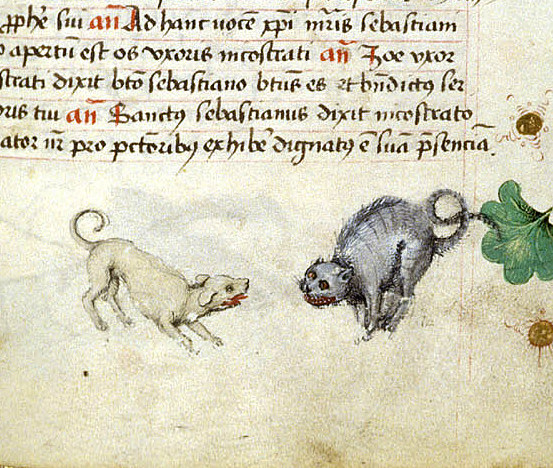 ꝓphē sui an̄ Ad hanc vocē xp̄i mr̄is sebastiani
apertū est os vxoris nicostrati an̄ Zoe vxor
strati dixit bt̄o sebastiano bt̄us es et bn̄dictꝰ ser
oris tui an̄ Sanctꝰ sebastianus dixit nicostrato
ator nr̄ pro pctōribꝰ exhibē dignatꝰ ē suā p̄senciā.